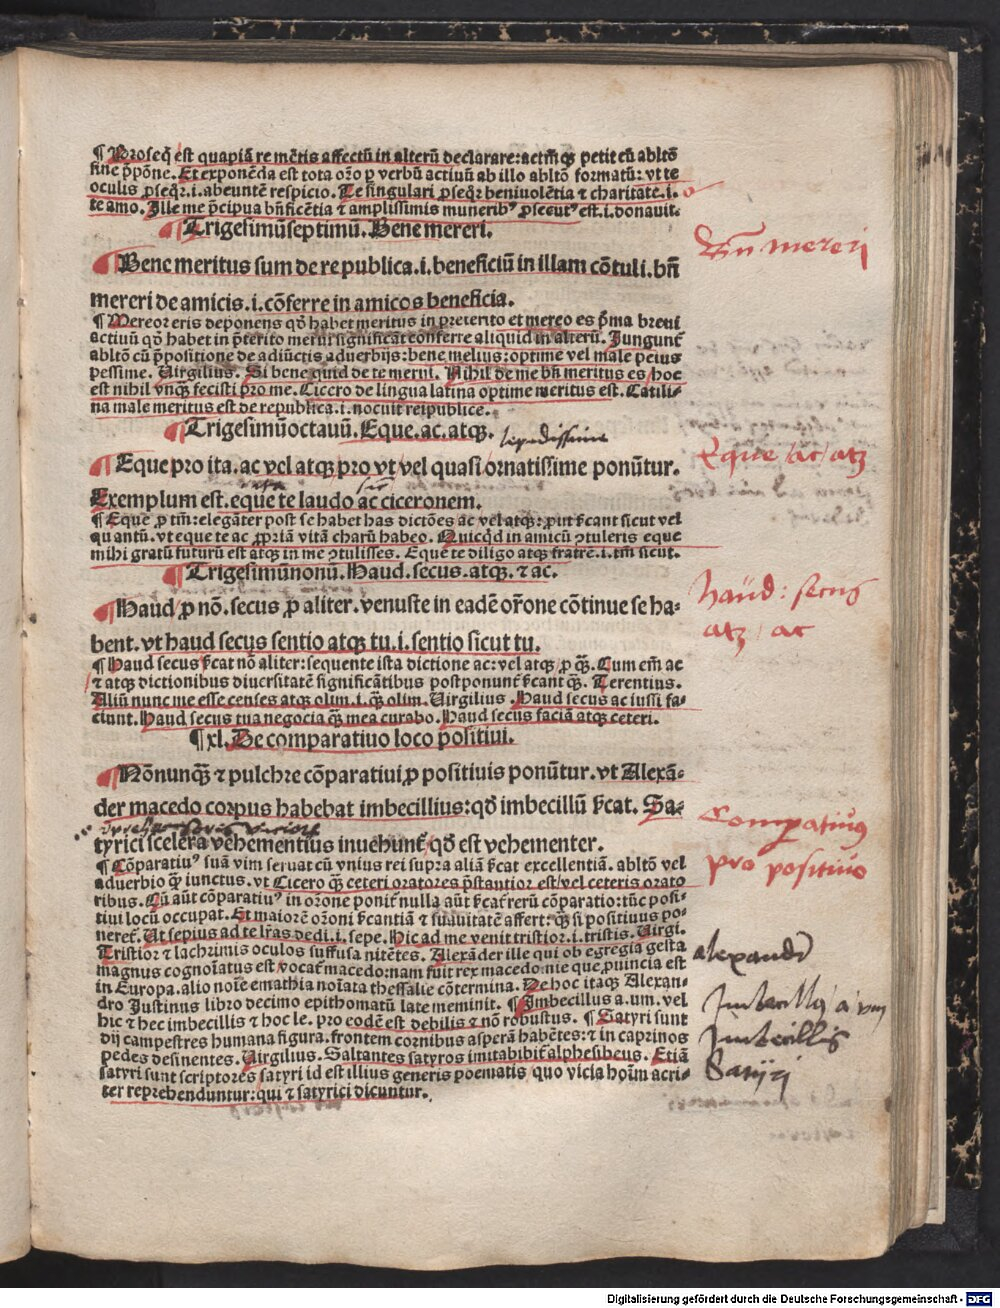 ¶ Proseq̃ est quapiã re mẽtis affectũ in alterũ declarare: actmq̃ꝫ petit cũ abltõ
sine p̃põne. Et exponẽda est tota orõ ꝑ verbũ actiuũ ab illo abltõ formatũ: vt te
oculis ꝓseqr̃. i. abeuntẽ respicio. Te singulari ꝓseqr̃ beniuolẽtia ⁊ charitate. i.
te amo. Ille me p̃cipua bñficẽtia ⁊ amplissimis munerib⁹ ꝓsecut⁹ est. i. donauit.
¶ Trigesimũseptimũ. Bene mereri.
Bñ mereri
¶ Bene meritus sum de re publica. i. beneficiũ in illam cõtuli. bñ
mereri de amicis. i. cõferre in amicos beneficia.
¶ Mereor eris deponens qd̃ habet meritus in preterito et mereo es p̃ma breui
actiuũ qd̃ habet in p̃terito merui significãt conferre aliquid in alterũ. Jungunt̃
abltõ cũ p̃positione de adiũctis aduerbijs: bene melius: optime vel male peius
pessime. Virgilius. Si bene quid de te merui. Nihil de me bñ meritus es/ hoc
est nihil vnq̃ꝫ fecisti pro me. Cicero de lingua latina optime meritus est. Catili-
na male meritus est de republica. i. nocuit reipublice.
¶ Trigesimũoctauũ. Eque. ac. atqꝫ. lepidissime
Eque/ ac/ atqꝫ
¶ Eque pro ita. ac vel atqꝫ pro vt/ vel quasi/ ornatissime ponũtur.
ita sicut
Exemplum est. eque te laudo ac ciceronem.
¶ Eque ꝓ tm̃: elegãter post se habet has dictões ac vel atqꝫ: ꝓut s̃cant sicut vel
quantũ. vt eque te ac ꝓpriã vitã charũ habeo. Quicq̃d in amicũ ↄtuleris eque
mihi gratũ futurũ est atqꝫ in me ↄtulisses. Eque te diligo atqꝫ fratrẽ. i. tm̃ sicut.
¶ Trigesimũnonũ. Haud. secus. atqꝫ. ⁊ ac.
haud: secus
atqꝫ/ ac
¶ Haud ꝓ nõ. secus ꝓ aliter. venuste in eadẽ or̃one cõtinue se ha-
bent. vt haud secus sentio atqꝫ tu. i. sentio sicut tu.
¶ Haud secus s̃cat nõ aliter: sequente ista dictione ac: vel atqꝫ ꝓ q̃ꝫ. Cum em̃ ac
⁊ atqꝫ dictionibus diuersitatẽ significãtibus postponunt̃ s̃cant q̃ꝫ. Terentius.
Aliũ nunc me esse censes atqꝫ olim. i. q̃ꝫ olim. Virgilius. Haud secus ac iussi fa-
ciunt. Haud secus tua negocia q̃ꝫ mea curabo. Haud secus faciã atqꝫ ceteri.
¶ xl. De comparatiuo loco positiui.
¶ Nõnunq̃ꝫ ⁊ pulchre cõparatiui ꝓ positiuis ponũtur. vt Alexã-
der macedo corpus habebat imbecillius: qd̃ imbecillũ s̃cat. Sa-
Comparatiuus
pro positiuo
tyrici scelera vehementius inuehunt̃/ qd̃ est vehementer.
¶ Cõparatiu⁹ suã vim seruat cũ vnius rei supra aliã s̃cat excellentiã. abltõ vel
aduerbio q̃ꝫ iunctus. vt Cicero q̃ꝫ ceteri oratores p̃stantior est/ vel ceteris orato
ribus. Cũ aũt cõparatiu⁹ in or̃one ponit̃ nulla aũt s̃cat̃ rerũ cõparatio: tũc posi-
tiui locũ occupat. Et maiorẽ or̃oni s̃cantiã ⁊ suauitatẽ affert: q̃ꝫ si positiuus po-
neret̃. Ut sepius ad te lr̃as dedi. i. sepe. Hic ad me venit tristior. i. tristis. Virgi.
Tristior ⁊ lachrimis oculos suffusa nitẽtes. Alexãder ille qui ob egregia gesta
alexander
magnus cognoĩatus est/ vocat̃ macedo: nam fuit rex macedonie que ꝓuincia est
in Europa. alio noĩe emathia noĩata thessalie cõtermina. De hoc itaqꝫ Alexan-
dro Justinus libro decimo epithomatũ late meminit. ¶ Imbecillus a. um. vel
Imbecillus a um
hic ⁊ hec imbecillis ⁊ hoc le. pro eodẽ est debilis ⁊ nõ robustus. ¶ Satyri sunt
Imbecillis
dij campestres humana figura. frontem cornibus asperã habẽtes: ⁊ in caprinos
pedes desinentes. Virgilius. Saltantes satyros imitabit̃ alphesibeus. Etiã
Satyri
satyri sunt scriptores satyri id est illius generis poematis quo vicia hoĩm acri-
ter reprehenduntur: qui ⁊ satyrici dicuntur.
Digitalisierung gefördert durch die Deutsche Forschungsgemeinschaft - DFG